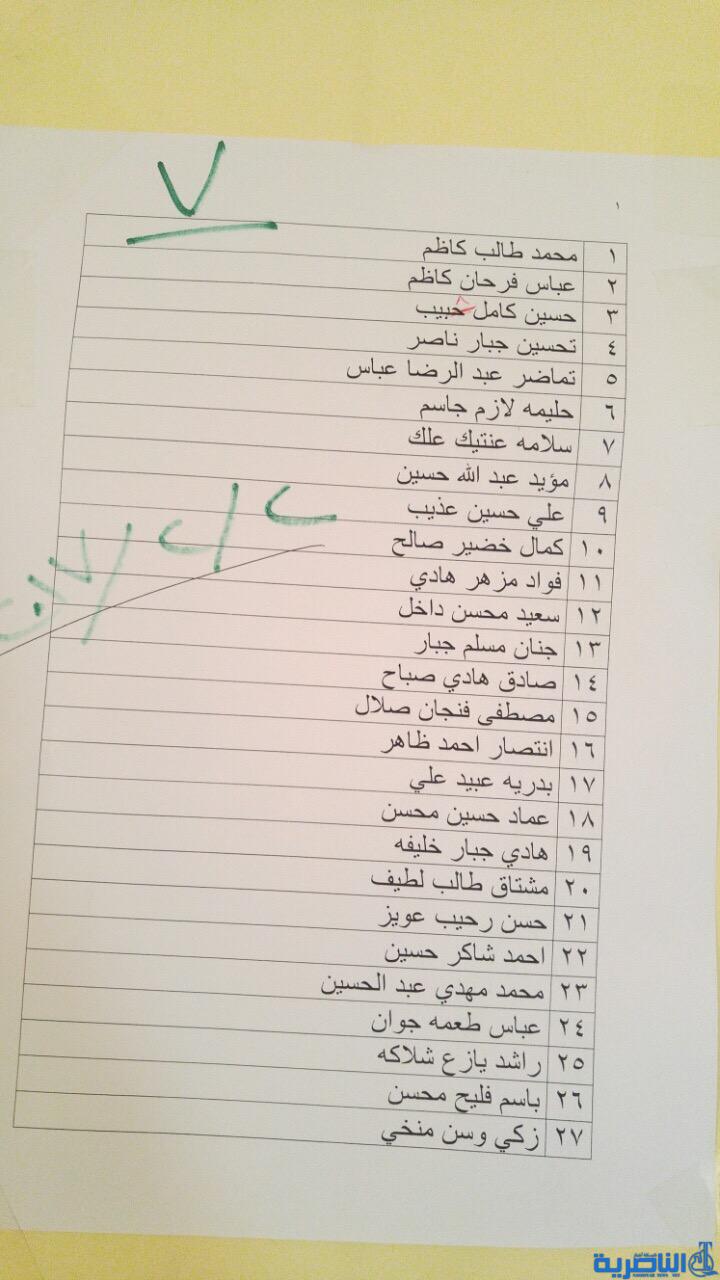 ٧
١
١ محمد طالب كاظم
٢ عباس فرحان كاظم
٣ حسين كامل حبيب
٤ تحسين جبار ناصر
٥ تماضر عبد الرضا عباس
٦ حليمه لازم جاسم
٧ سلامه عنتيك علك
٨ مؤيد عبد الله حسين
٩ علي حسين عذيب
١٠ كمال خضير صالح
١١ فواد مزهر هادي
١٢ سعيد محسن داخل
١٣ جنان مسلم جبار
١٤ صادق هادي صباح
١٥ مصطفى فنجان صلال
١٦ انتصار احمد ظاهر
١٧ بدريه عبيد علي
١٨ عماد حسين محسن
١٩ هادي جبار خليفه
٢٠ مشتاق طالب لطيف
٢١ حسن رحيب عويز
٢٢ احمد شاكر حسين
٢٣ محمد مهدي عبد الحسين
٢٤ عباس طعمه جوان
٢٥ راشد يازع شلاكه
٢٦ باسم فليح محسن
٢٧ زكي وسن منخي
الناصرية